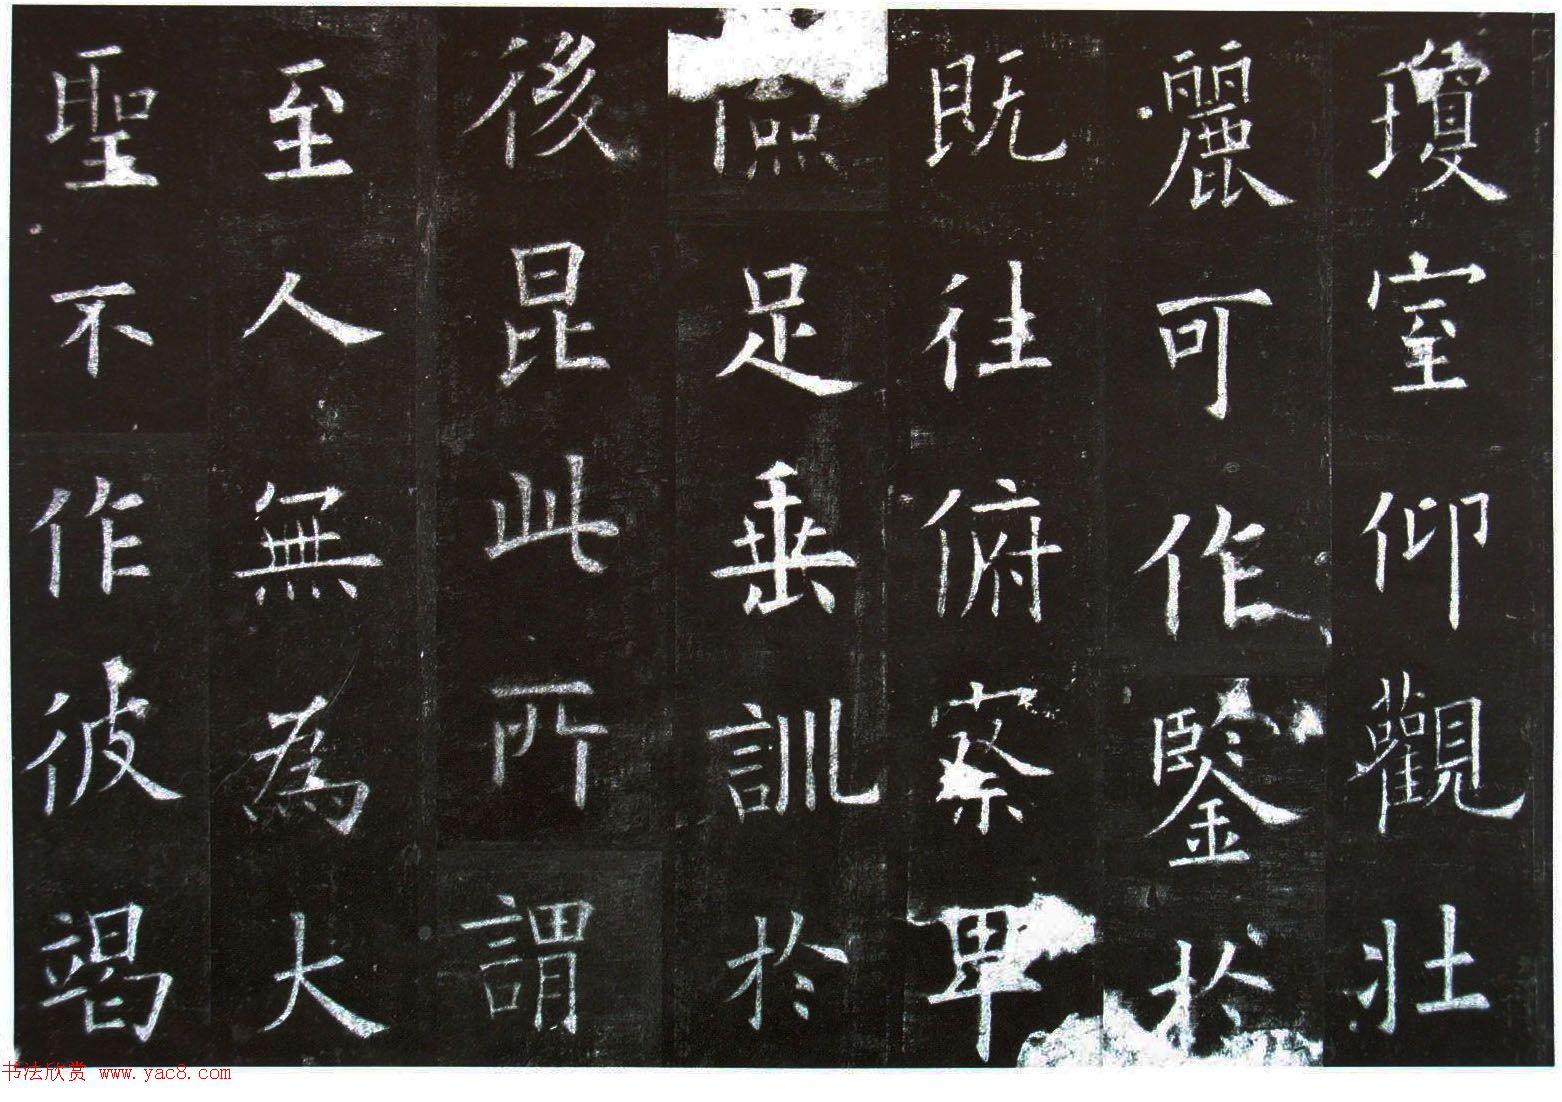 瓊室仰觀壯
麗可作鑒於
既往俯察卑
儉足垂訓於
後昆此所謂
至人無為大
聖不作彼竭
书法欣赏 www.yac8.com